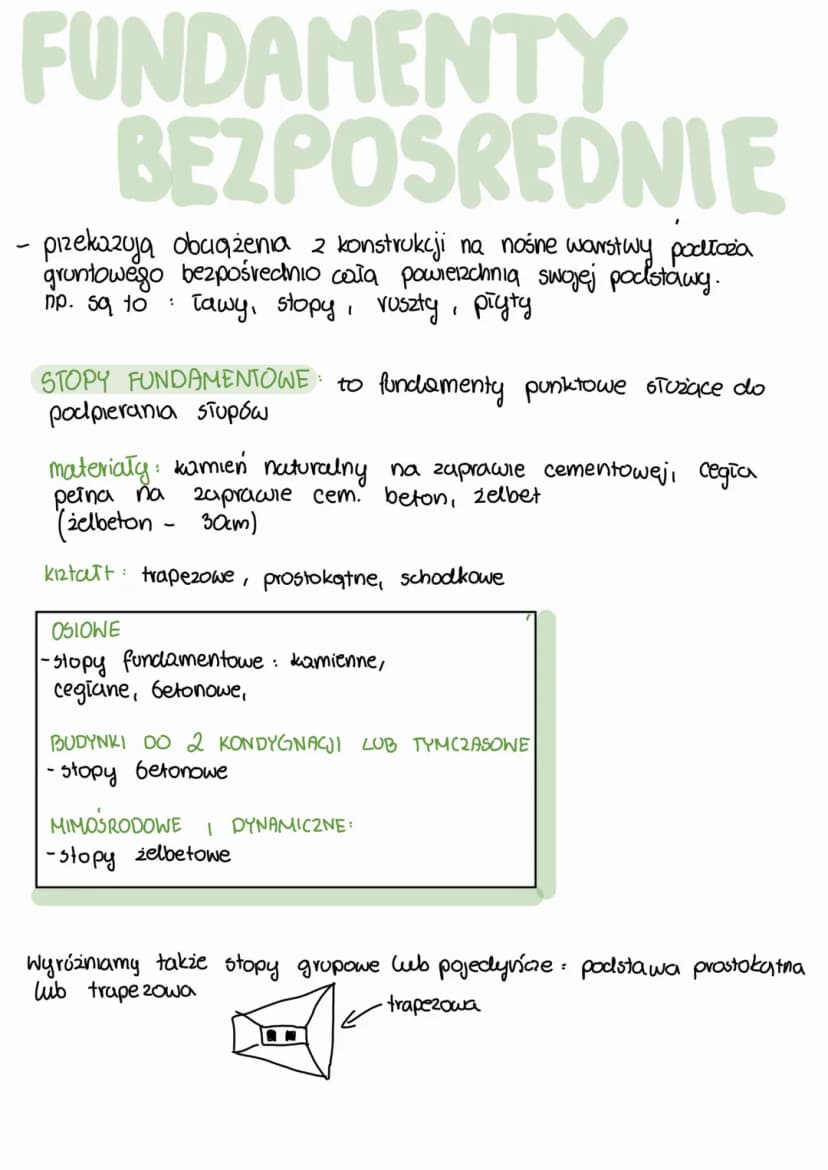 FUNDAMENTY
BEZPOŚREDNIE
- przekazują obciążenia z konstrukcji na nośne warstwy podłoża
gruntowego bezpośrednio całą powierzchnią swojej podstawy.
np. są to : ławy, stopy, ruszty, płyty
STOPY FUNDAMENTOWE: to fundamenty punktowe służące do
podpierania słupów
materiały: kamień naturalny na zaprawie cementowej, cegła
pełna na zaprawie cem. beton, żelbet
(żelbeton - 30cm)
kształt: trapezowe, prostokątne, schodkowe
OSIOWE
- stopy fundamentowe: kamienne,
ceglane, betonowe,
BUDYNKI DO 2 KONDYGNACJI LUB TYMCZASOWE
- stopy betonowe
MIMOŚRODOWE I DYNAMICZNE:
- stopy żelbetowe
Wyróżniamy także stopy grupowe lub pojedyńcze: podstawa prostokątna
lub trapezowa
trapezowa